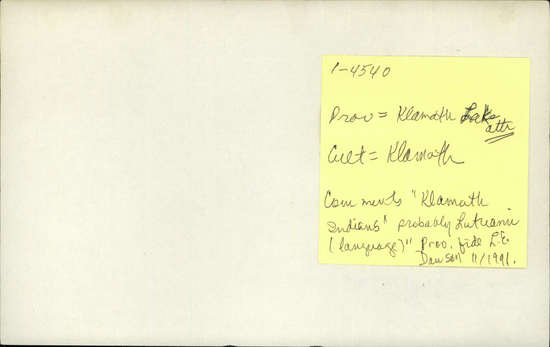 1-4540
Prov = Klamath Lake
attr
Cult = Klamath
Comments "Klamath
Indians" probably Lutuami
(language)" Prov. fide L.E.
Dawson 11/1991.